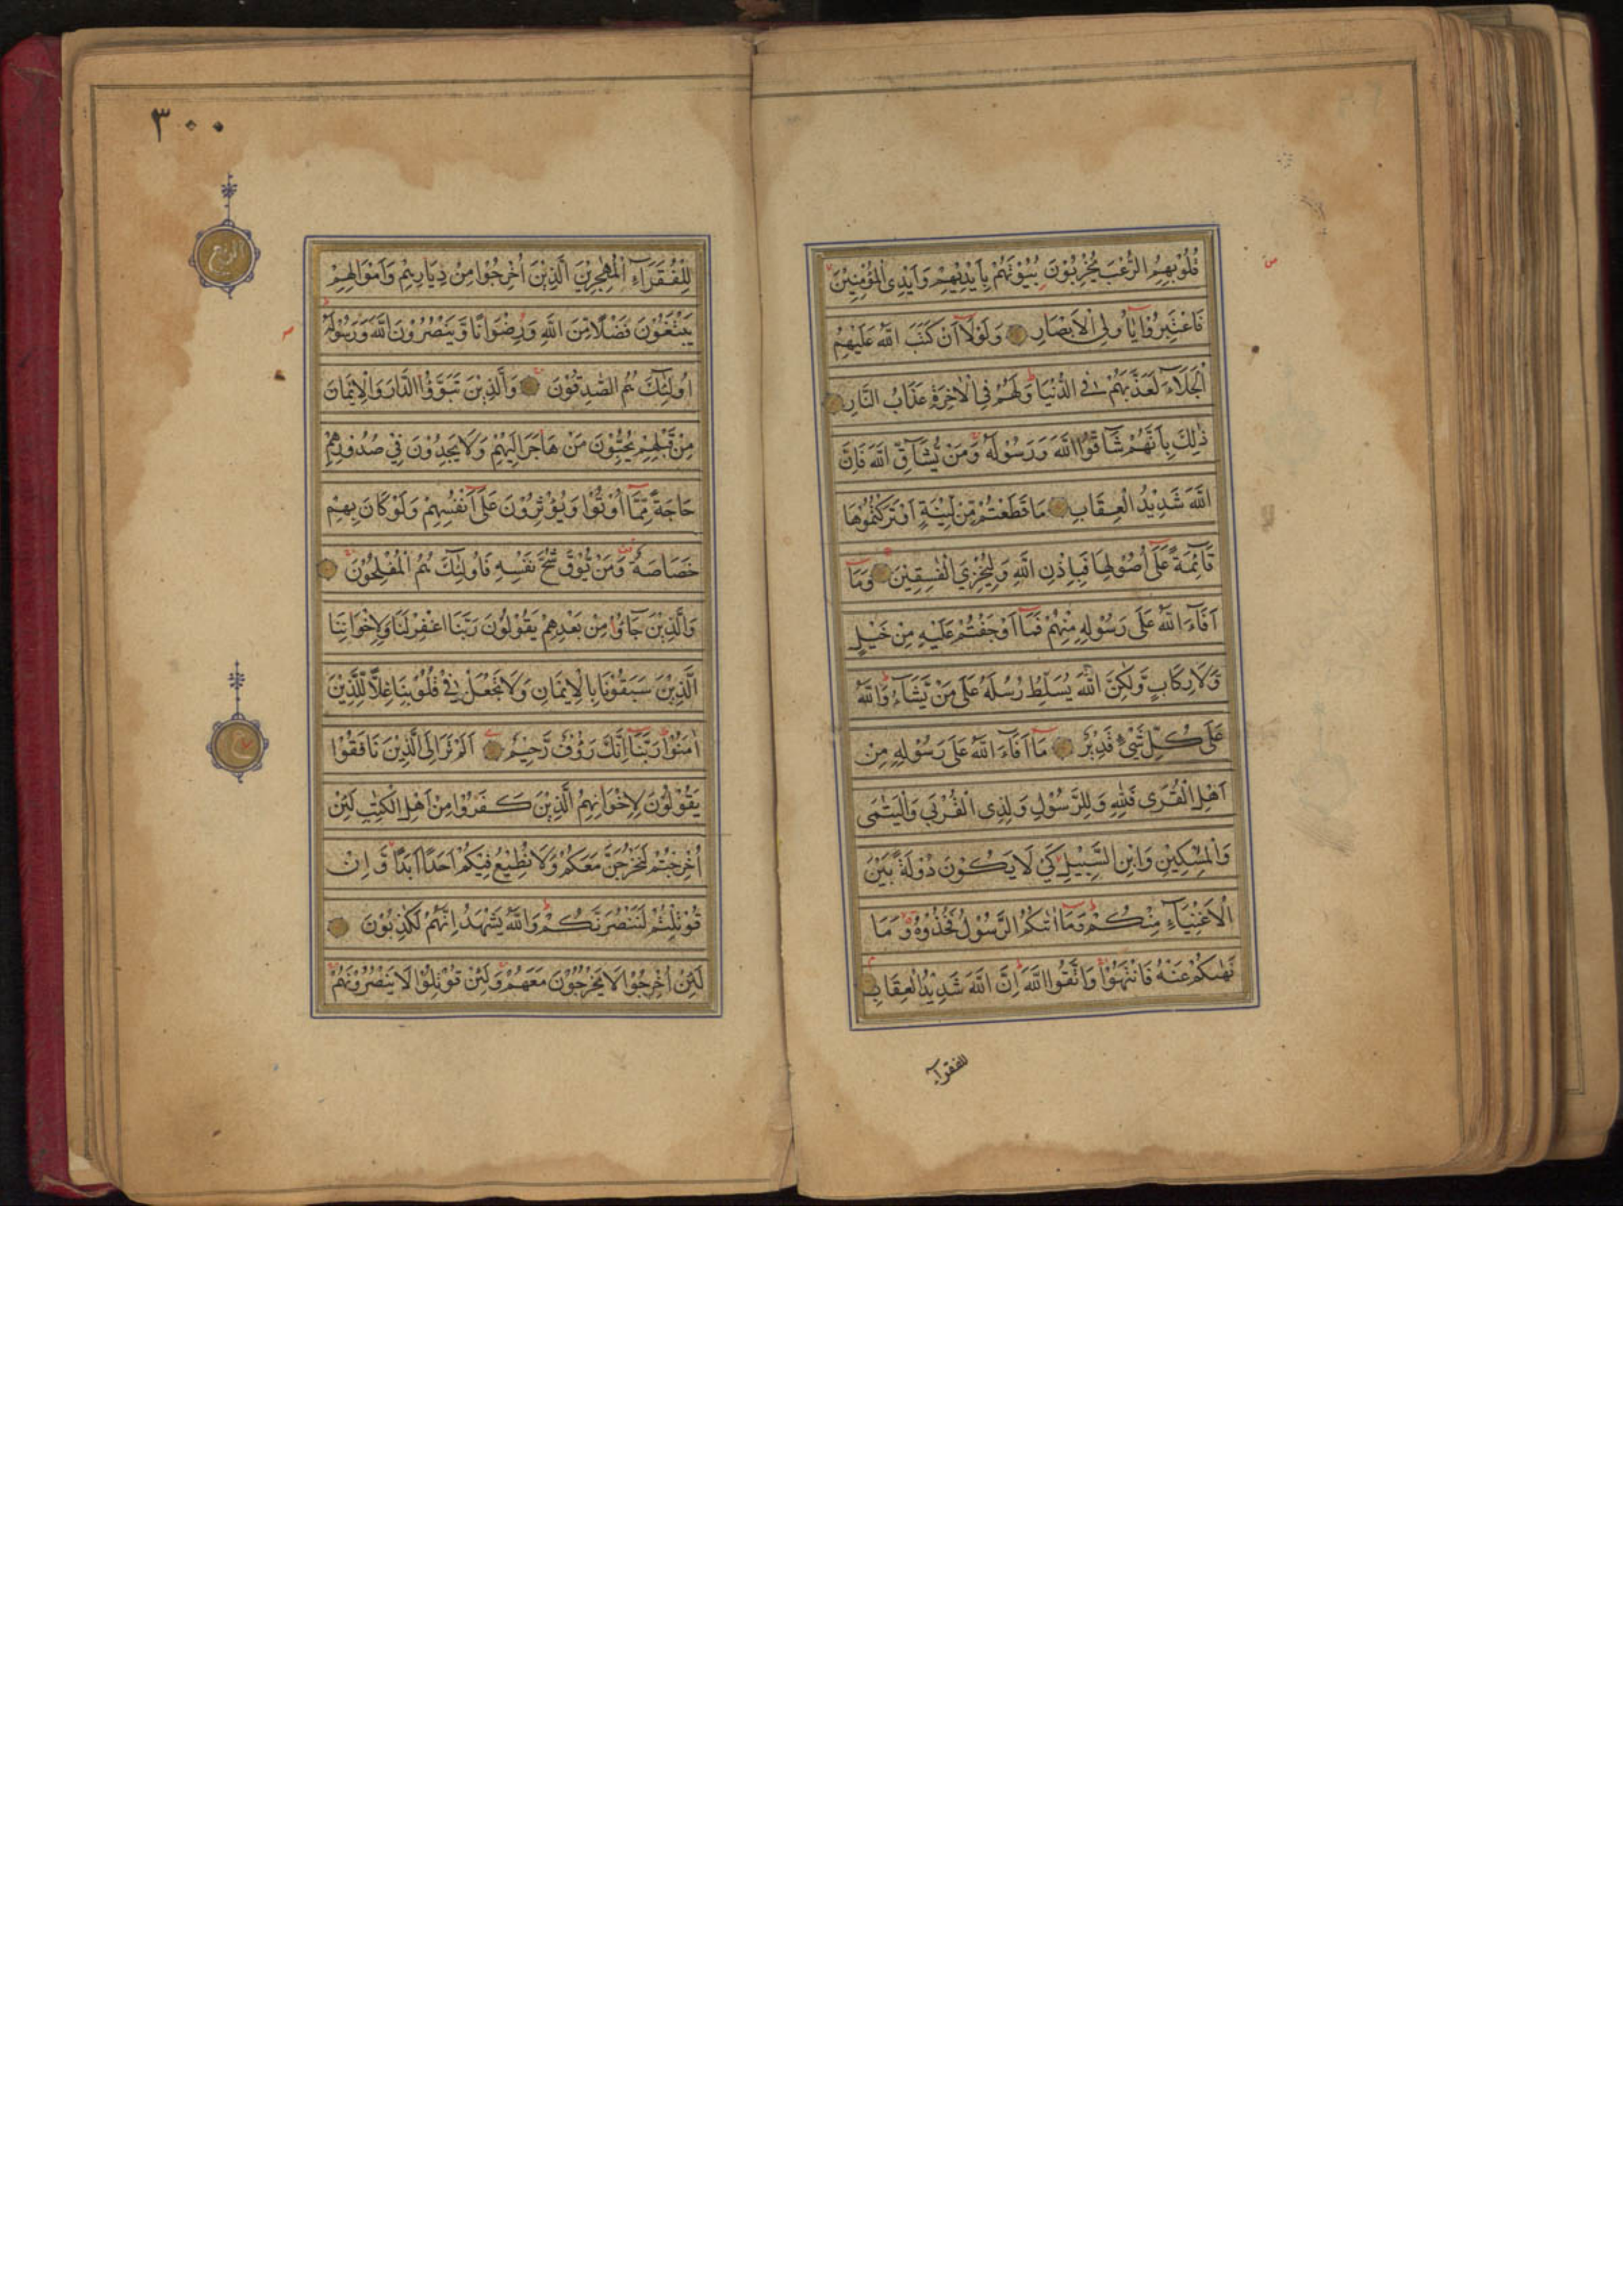 قُلُوْبِهِمُ الرُّعْبَ يُخْرِبُوْنَ بُيُوْتَهُمْ بِاَيْدِيْهِمْ وَاَيْدِى الْمُؤْمِنِيْنَ
فَاعْتَبِرُوْا يٰٓاُولِى الْاَبْصَارِ وَلَوْلَآ اَنْ كَتَبَ اللّٰهُ عَلَيْهِمُ
الْجَلَآءَ لَعَذَّبَهُمْ فِى الدُّنْيَا وَلَهُمْ فِى الْاٰخِرَةِ عَذَابُ النَّارِ
ذٰلِكَ بِاَنَّهُمْ شَآقُّوا اللّٰهَ وَرَسُوْلَهٗ وَمَنْ يُّشَآقِّ اللّٰهَ فَاِنَّ
اللّٰهَ شَدِيْدُ الْعِقَابِ مَا قَطَعْتُمْ مِّنْ لِّيْنَةٍ اَوْ تَرَكْتُمُوْهَا
قَآئِمَةً عَلٰٓى اُصُوْلِهَا فَبِاِذْنِ اللّٰهِ وَلِيُخْزِيَ الْفٰسِقِيْنَ وَمَآ
اَفَآءَ اللّٰهُ عَلٰى رَسُوْلِهٖ مِنْهُمْ فَمَآ اَوْجَفْتُمْ عَلَيْهِ مِنْ خَيْلٍ
وَّلَا رِكَابٍ وَّلٰكِنَّ اللّٰهَ يُسَلِّطُ رُسُلَهٗ عَلٰى مَنْ يَّشَآءُ وَاللّٰهُ
عَلٰى كُلِّ شَىْءٍ قَدِيْرٌ مَآ اَفَآءَ اللّٰهُ عَلٰى رَسُوْلِهٖ مِنْ
اَهْلِ الْقُرٰى فَلِلّٰهِ وَلِلرَّسُوْلِ وَلِذِى الْقُرْبٰى وَالْيَتٰمٰى
وَالْمَسٰكِيْنِ وَابْنِ السَّبِيْلِ كَيْ لَا يَكُوْنَ دُوْلَةً بَيْنَ
الْاَغْنِيَآءِ مِنْكُمْ وَمَآ اٰتٰىكُمُ الرَّسُوْلُ فَخُذُوْهُ وَمَا
نَهٰىكُمْ عَنْهُ فَانْتَهُوْا وَاتَّقُوا اللّٰهَ اِنَّ اللّٰهَ شَدِيْدُ الْعِقَابِ
للفقرآء
٣٠٠
الربع
ع
لِلْفُقَرَآءِ الْمُهٰجِرِيْنَ الَّذِيْنَ اُخْرِجُوْا مِنْ دِيَارِهِمْ وَاَمْوَالِهِمْ
يَبْتَغُوْنَ فَضْلًا مِّنَ اللّٰهِ وَرِضْوَانًا وَّيَنْصُرُوْنَ اللّٰهَ وَرَسُوْلَهٗ
اُولٰٓئِكَ هُمُ الصّٰدِقُوْنَ وَالَّذِيْنَ تَبَوَّؤُا الدَّارَ وَالْاِيْمَانَ
مِنْ قَبْلِهِمْ يُحِبُّوْنَ مَنْ هَاجَرَ اِلَيْهِمْ وَلَا يَجِدُوْنَ فِيْ صُدُوْرِهِمْ
حَاجَةً مِّمَّآ اُوْتُوْا وَيُؤْثِرُوْنَ عَلٰٓى اَنْفُسِهِمْ وَلَوْ كَانَ بِهِمْ
خَصَاصَةٌ وَمَنْ يُّوْقَ شُحَّ نَفْسِهٖ فَاُولٰٓئِكَ هُمُ الْمُفْلِحُوْنَ
وَالَّذِيْنَ جَآؤُا مِنْ بَعْدِهِمْ يَقُوْلُوْنَ رَبَّنَا اغْفِرْ لَنَا وَلِاِخْوَانِنَا
الَّذِيْنَ سَبَقُوْنَا بِالْاِيْمَانِ وَلَا تَجْعَلْ فِيْ قُلُوْبِنَا غِلًّا لِّلَّذِيْنَ
اٰمَنُوْا رَبَّنَآ اِنَّكَ رَؤُفٌ رَّحِيْمٌ اَلَمْ تَرَ اِلَى الَّذِيْنَ نَافَقُوْا
يَقُوْلُوْنَ لِاِخْوَانِهِمُ الَّذِيْنَ كَفَرُوْا مِنْ اَهْلِ الْكِتٰبِ لَئِنْ
اُخْرِجْتُمْ لَنَخْرُجَنَّ مَعَكُمْ وَلَا نُطِيْعُ فِيْكُمْ اَحَدًا اَبَدًا وَّاِنْ
قُوْتِلْتُمْ لَنَنْصُرَنَّكُمْ وَاللّٰهُ يَشْهَدُ اِنَّهُمْ لَكٰذِبُوْنَ
لَئِنْ اُخْرِجُوْا لَا يَخْرُجُوْنَ مَعَهُمْ وَلَئِنْ قُوْتِلُوْا لَا يَنْصُرُوْنَهُمْ